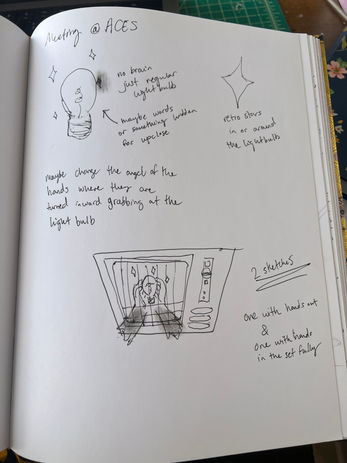 Meeting @ ACES
no brain
just regular
lightbulb
maybe words
or something hidden
for upclose
retro stars
in or around
the lightbulbs
maybe change the angel of the
hands where they are
turned inward grabbing at the
light bulb
2 sketches
one with hands out
&
one with hands
in the set fully